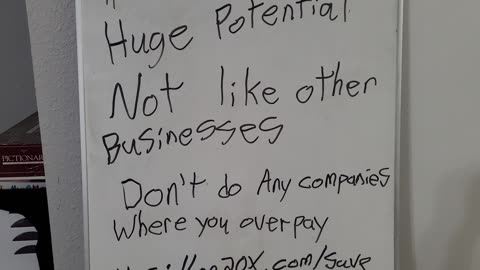 Huge Potential
Not like other
Businesses
Don't do Any companies
Where you overpay
.com/save
PICTIONAR